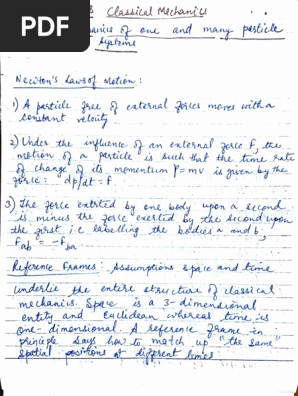 PDF
Classical Mechanics
anics of one and many particle
systems
Newton's Laws of Motion:
1) A particle free of external forces moves with a
constant velocity
2) Under the influence of an external force F, the
motion of a particle is such that the time rate
of change of its momentum P=mv is given by the
force: dp/dt = F
3) The force exerted by one body upon a second
is minus the force exerted by the second upon
the first i.e labelling the bodies a and b,
Fab = -Fba
Reference Frames: Assumptions space and time
underlie the entire structure of classical
mechanics. Space is a 3-dimensional
entity and Euclidean whereas time is
one-dimensional. A reference frame in
principle says how to match up "the same"
spatial positions at different times